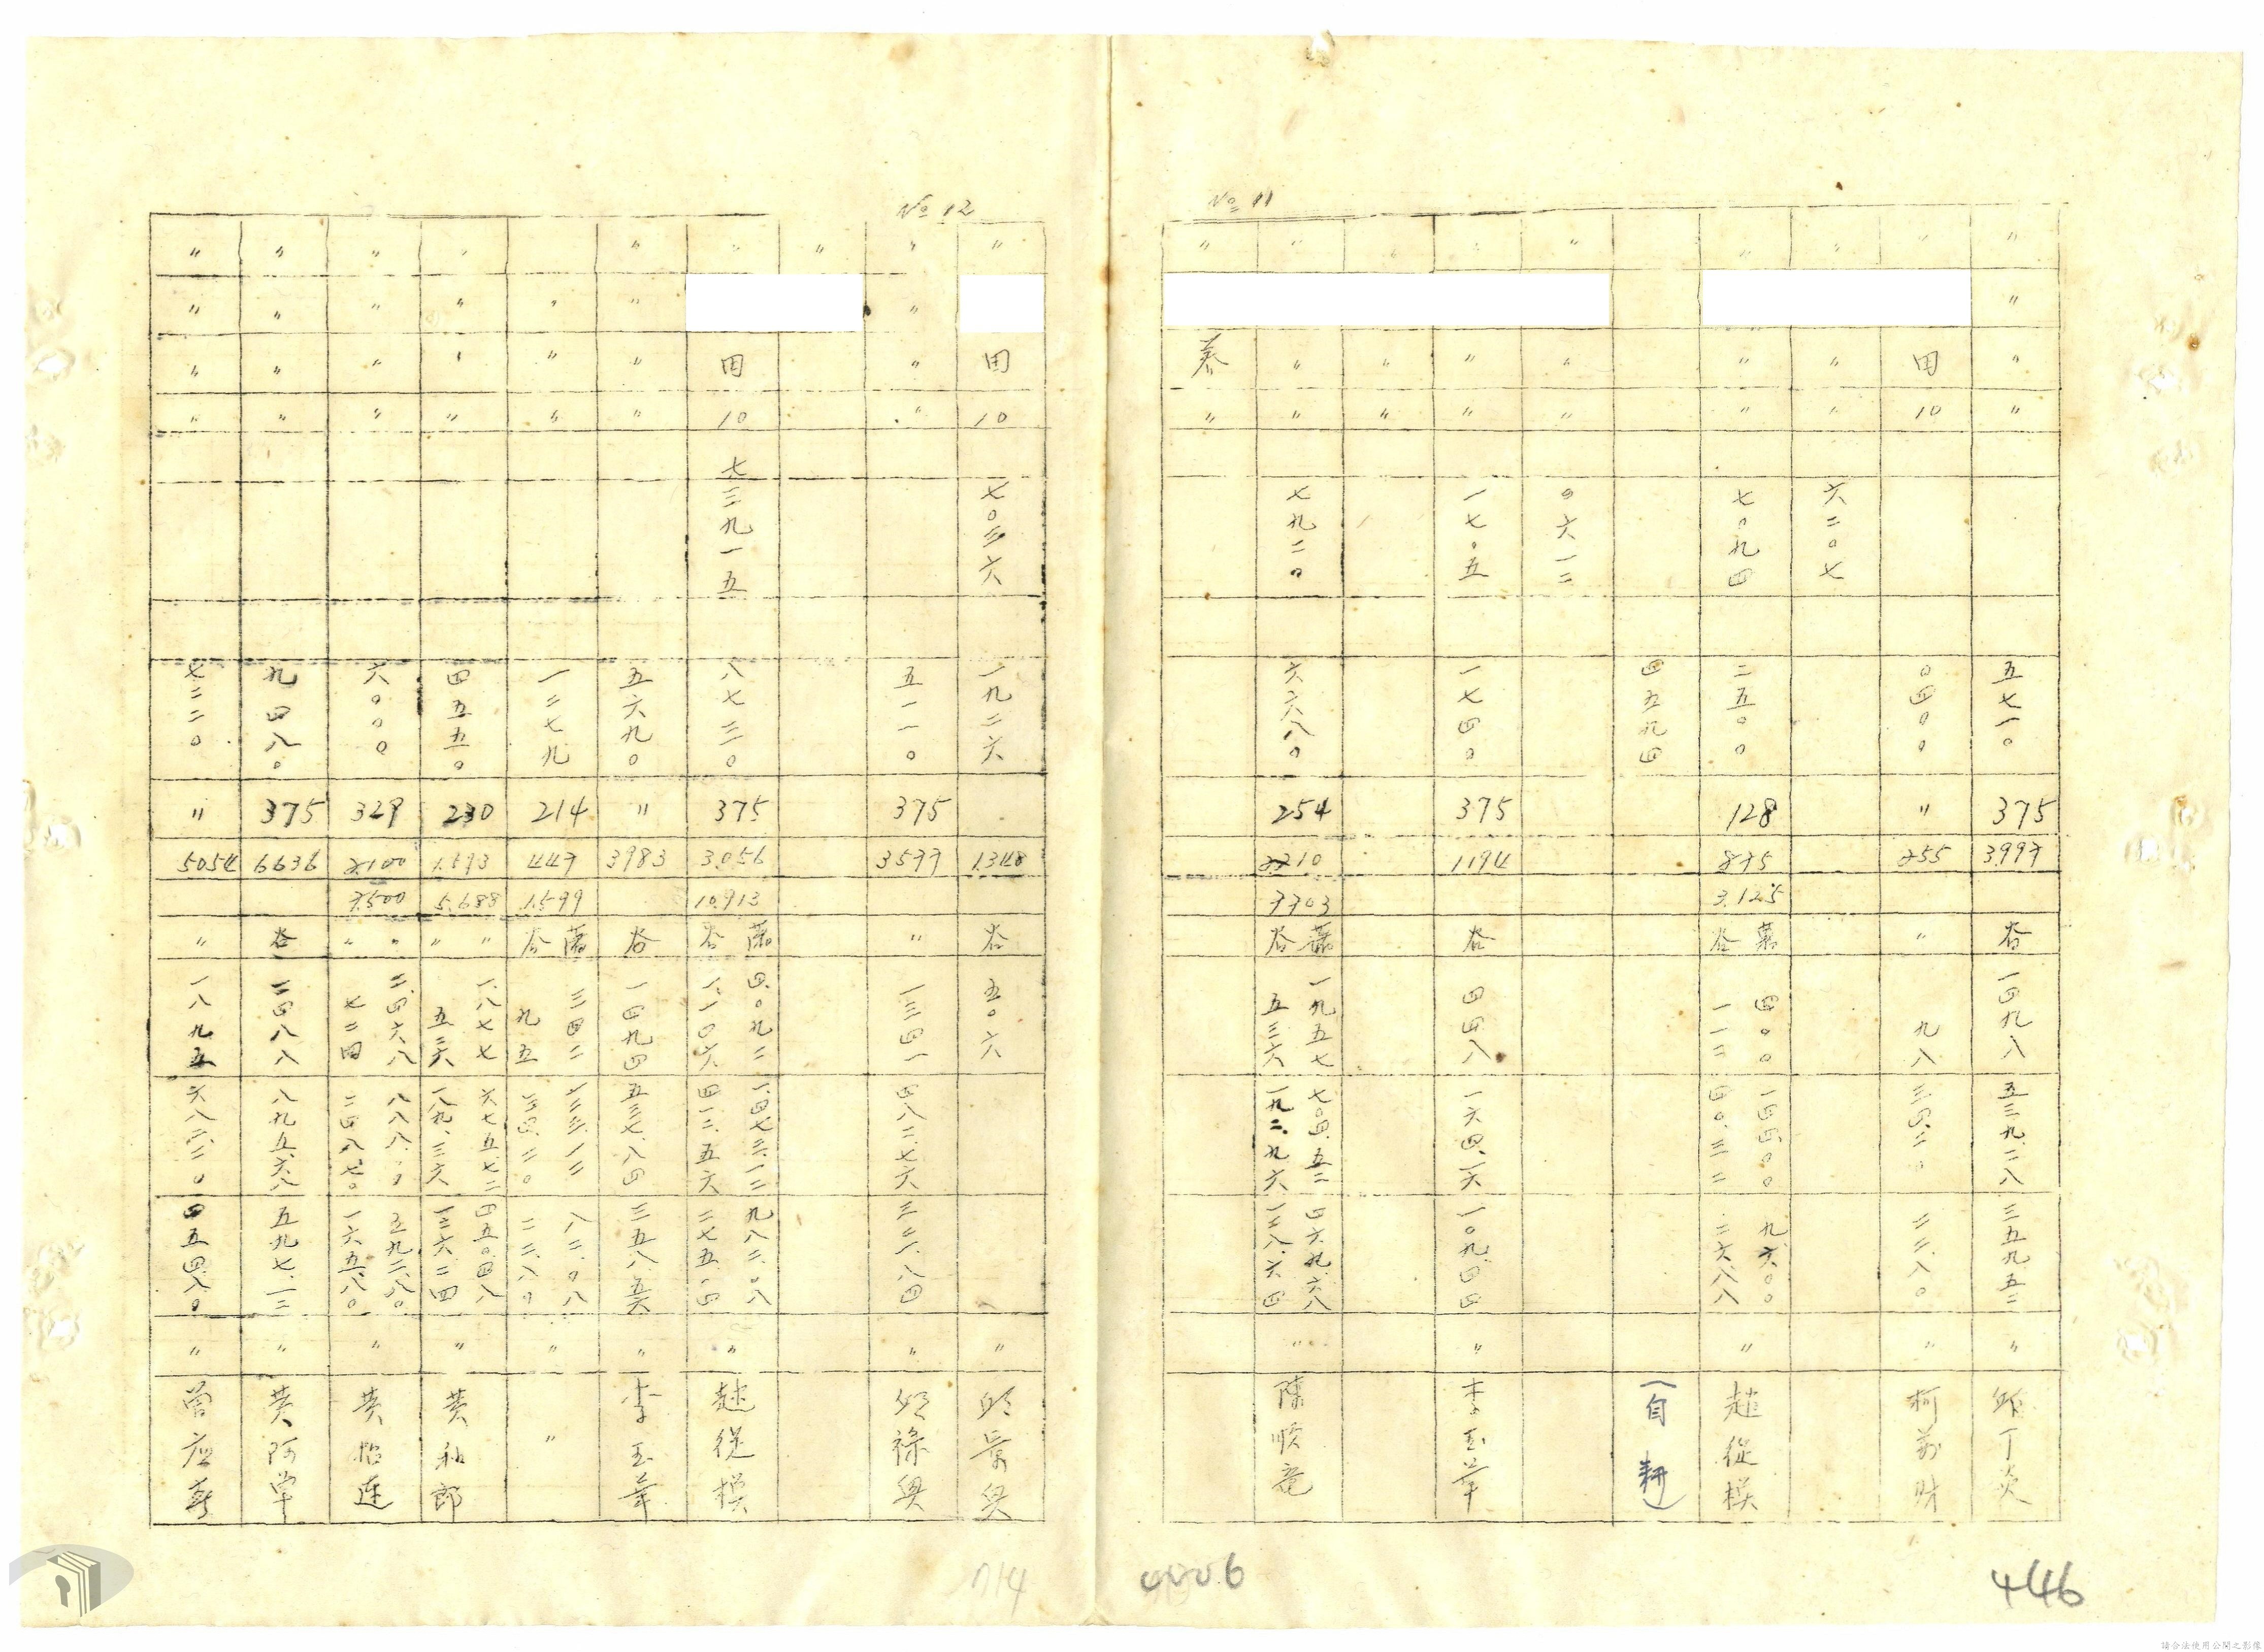 No 11
〃 〃 〃 5710 375 3.997 谷 一四九八 五三九.二八 三五九.五二 〃 邱丁炎
〃 田 10 〃 255 〃 九八 三四.二〇 二二.八〇 〃 柯萬財
〃 〃 〃 六二〇七
〃 〃 〃 七〇九四 二五〇〇 128 875 3.125 谷 蕃 四〇〇 一一二 一四四.〇〇 四〇.三二 九六.〇〇 二六.八八 〃 趙從模
四五九四 (自耕)
〃 〃 〃 〇六一二
〃 〃 〃 一七〇五 一七四〇 375 1194 谷 四四八 一六四.一六 一〇九.四四 〃 李玉華
〃 〃 〃
〃 〃 〃 七九二〇 六六八〇 254 2210 7703 谷 蕃 一九五七 五三六 七〇四.五二 一九二.九六 四六九.六八 一二八.六四 〃 陳順竜
〃 〃
No 12
〃 田 10 七〇三六 一九二六 1348 谷 五〇六 〃 邱景興
〃 〃 〃 〃 五一一〇 375 3577 〃 一三四一 四八二.七六 三二一.八四 〃 邱祿興
〃
〃 田 10 七三九一五 八七三〇 375 3.056 10.913 谷 蕃 四.〇九二 一.一〇六 一.四七三.一二 四一二.五六 九八二.〇八 二七五.〇四 〃 趙從模
〃 〃 〃 〃 五六九〇 〃 3983 谷 一四九四 五三七.八四 三五八.五六 〃 李玉華
〃 〃 〃 一二七九 214 447 1.599 谷 蕃 三四二 九五 一二三.一二 三四.二〇 八二.〇八 二二.八〇 〃 〃
〃 〃 〃 〃 四五五〇 230 1.593 5.688 〃 〃 一.八七七 五二六 六七五.七二 一八九.三六 四五〇.四八 一二六.二四 〃 黃和郎
〃 〃 〃 〃 六〇〇〇 329 2.100 7.500 〃 〃 二.四六八 七二四 八八八.〇〇 五九二.八〇 一六五.八〇 〃 黃怡蓮
〃 〃 〃 〃 九四八〇 375 6636 谷 二四八八 八九五.六八 五九七.一二 〃 黃阿單
〃 〃 〃 〃 七二二〇 〃 5054 〃 一八九五 六八二.二〇 四五四.八〇 〃
714
446
請合法使用公開之影像